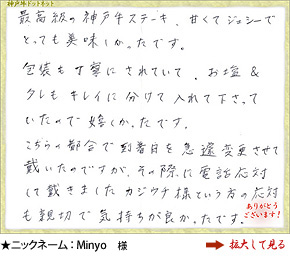 神戸牛ドットネット
最高級の神戸牛ステーキ、甘くてジューシーで
とっても美味しかったです。
包装も丁寧にされていて、お塩&
タレもキレイに分けて入れて下さって
いたので嬉しかったです。
こちらの都合で到着日を急遽変更させて
戴いたのですが、その際に電話応対
して戴きましたカジウチ様という方の応対
も親切で気持ちが良かったです。
ありがとう
ございます!
★ニックネーム:Minyo 様
➡拡大して見る